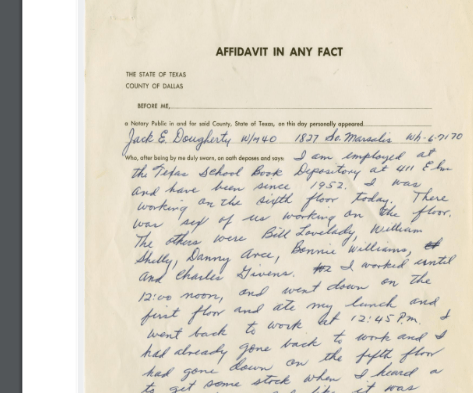 AFFIDAVIT IN ANY FACT
THE STATE OF TEXAS
COUNTY OF DALLAS
BEFORE ME,
a Notary Public in and for said County, State of Texas, on this day personally appeared
Jack E. Dougherty W/M40 1827 So. Marsalis Wh-6-7170
Who, after being by me duly sworn, on oath deposes and says: I am employed at
the Texas School Book Depository at 411 Elm
and have been since 1952. I was
working on the sixth floor today. There
was six of us working on the floor.
The others were Bill Lovelady, William
Shelly, Danny Arce, Bonnie Williams,
and Charles Givens. I worked until
12:00 noon, and went down on the
first floor and ate my lunch and
went back to work at 12:45 P.M. I
had already gone back to work and I
had gone down on the fifth floor
to get some stock when I heard a
like it was